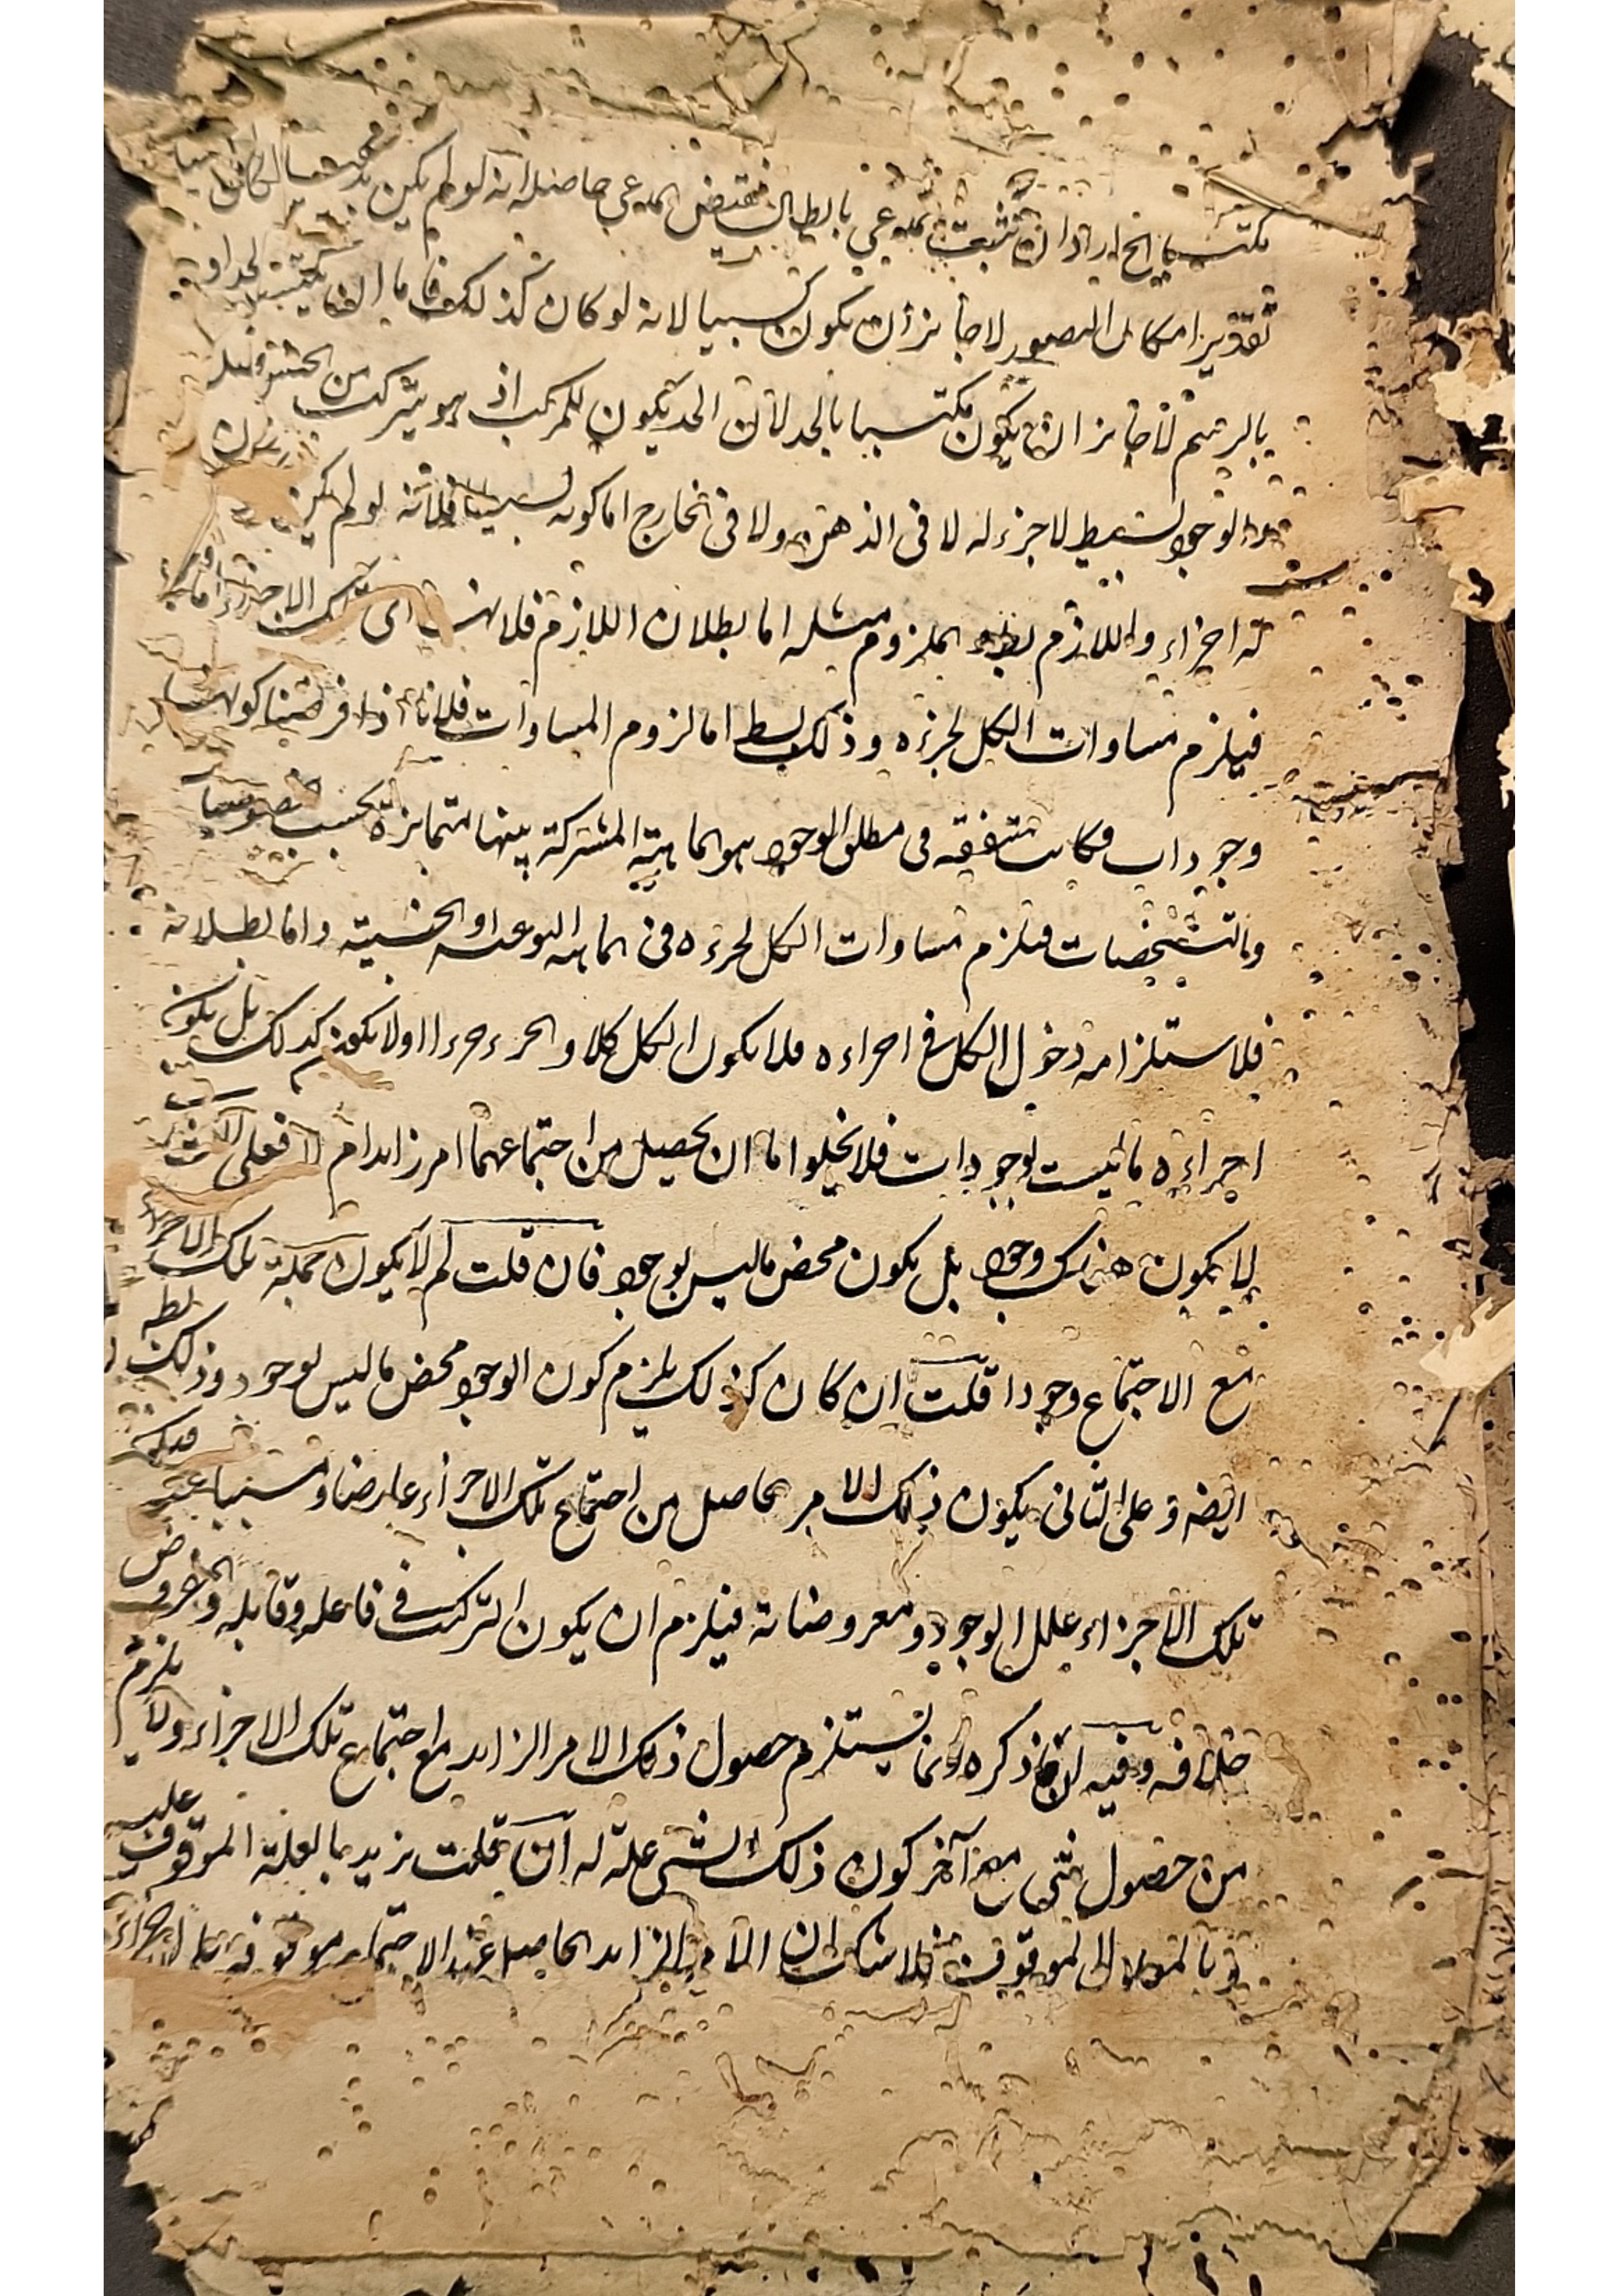 مكتسبا الخ اراد ان يثبت المدعى بابطال نقيض المدعى حاصله انه لو لم يكن بديهيا لكان كسبيا
تقدير امكان التصور لا جائز ان يكون كسبيا لانه لو كان كذلك فاما ان يكتسب بالحد او
بالرسم لا جائز ان يكون مكتسبا بالحد لان الحد يكون للمركب اذ هو يتركب من الجنس والفصل
والوجود بسيط لا جزء له لا فى الذهن ولا فى الخارج اما كونه بسيطا فلانه لو لم يكن
له اجزاء واللازم بط فالملزوم مثله اما بطلان اللازم فلانه اى تلك الاجزاء اما
فيلزم مساوات الكل لجزئه وذلك بط اما لزوم المساوات فلانا اذا فرضنا كونها
وجودات فكانت متفقه فى مطلق الوجود هو الماهية المشتركة بينها متمايزة بحسب خصوصيات
والتشخصات فيلزم مساوات الكل لجزءه فى الماهيه النوعيه او الجنسية واما بطلانه
فلاستلزامه دخول الكل فى اجزاءه فلا يكون الكل كلا والجزء جزءا او لا يكون كذلك بل يكون
اجزاءه ما ليست بوجودات فلا يخلوا اما ان يحصل من اجتماعهما امر زايد ام لا فعلى الثانى
لا يكون هناك وجود بل يكون محض ما ليس بوجود فان قلت لم لا يكون جملة تلك الاجزاء
مع الاجتماع وجودا قلت ان كان كذلك يلزم كون الوجود محض ما ليس بوجود وذلك بط
ايضه وعلى الثانى يكون ذلك الامر الحاصل من اجتماع تلك الاجزاء عارضا ومسببا عنه
تلك الاجزاء علل الوجود ومعروضاته فيلزم ان يكون التركب فى فاعله وقابله والمفروض
خلافه وفيه ان ما ذكره انما يستلزم حصول ذلك الامر الزايد مع اجتماع تلك الاجزاء ولا يلزم
من حصول شى مع آخر كون ذلك الشى علة له ان قلت نريد بالعلة الموقوف عليه
وبالمعلول الموقوف فلا شك ان الامر الزايد الحاصل عند الاجتماع موقوف على الاجزاء